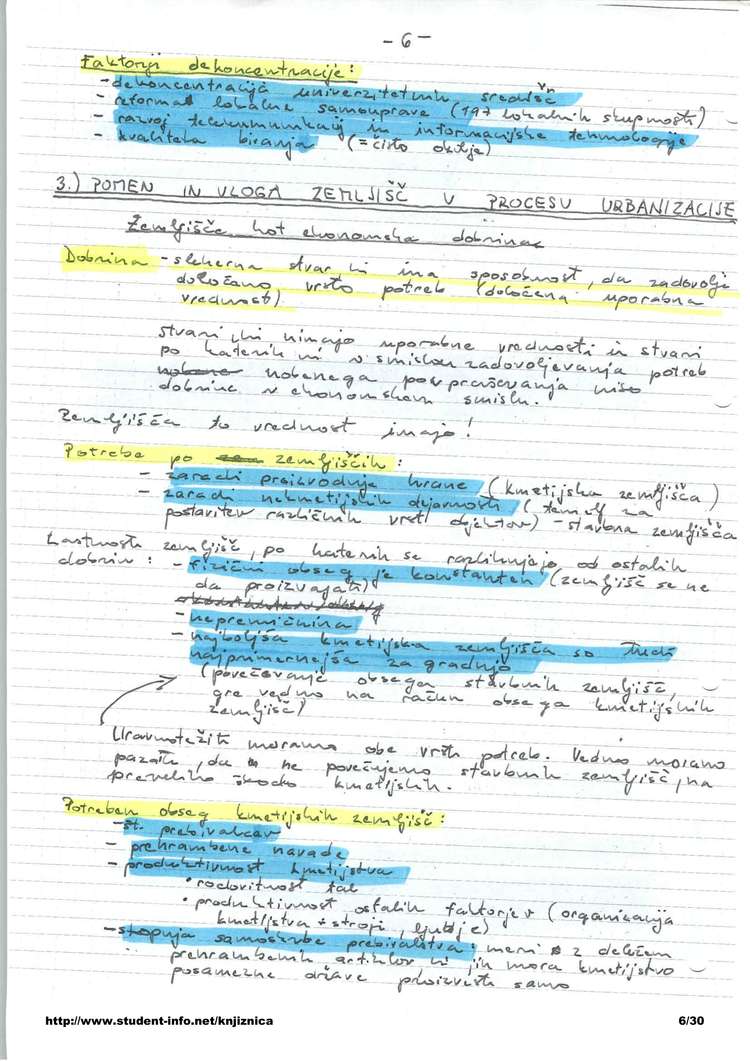 - 6 -
Faktorji dekoncentracije:
- dekoncentracija univerzitetnih središč
- reforma lokalne samouprave (197 lokalnih skupnosti)
- razvoj telekomunikacij in informacijske tehnologije
- kvaliteta bivanja (= čisto okolje)
3.) POMEN IN VLOGA ZEMLJIŠČ V PROCESU URBANIZACIJE
Zemljišče kot ekonomska dobrina
Dobrina - sleherna stvar ki ima sposobnost, da zadovolji
določeno vrsto potreb (določena uporabna
vrednost)
stvari ki nimajo uporabne vrednosti in stvari
po katerih ni v smislu zadovoljevanja potreb
nobenega povpraševanja niso
dobrine v ekonomskem smislu.
Zemljišča to vrednost imajo!
Potrebe po zemljiščih:
- zaradi proizvodnje hrane (kmetijska zemljišča)
- zaradi nekmetijskih dejavnosti (temelj za
postavitev različnih vrst objektov) - stavbna zemljišča
Lastnosti zemljišč, po katerih se razlikujejo od ostalih
dobrin: - fizični obseg je konstanten (zemljišč se ne
da proizvajati)
- nepremičnina
- najboljša kmetijska zemljišča so tudi
najprimernejša za gradnjo
(povečevanje obsega stavbnih zemljišč,
gre vedno na račun obsega kmetijskih
zemljišč)
Uravnotežiti moramo obe vrsti potreb. Vedno moramo
paziti, da ne povečujemo stavbnih zemljišč, na
preveliko škodo kmetijskih.
Potreben obseg kmetijskih zemljišč:
- št. prebivalcev
- prehrambene navade
- produktivnost kmetijstva
• rodovitnost tal
• produktivnost ostalih faktorjev (organizacija
kmetijstva + stroji, ljudje)
- stopnja samooskrbe prebivalstva: meri z deležem
prehrambenih artiklov ki jih mora kmetijstvo
posamezne države proizvesti samo
http://www.student-info.net/knjiznica
6/30